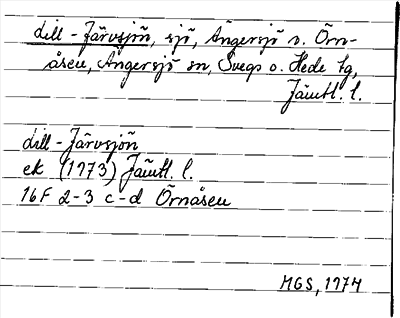 Lill-Järvsjön, sjö, Ängersjö v. Örn-
åsen, Ängersjö sn, Svegs o. Hede tg,
Jämtl. l.
Lill-Järvsjön
ek (1973) Jämtl. l.
16F 2-3 c-d Örnåsen
MGS, 1974